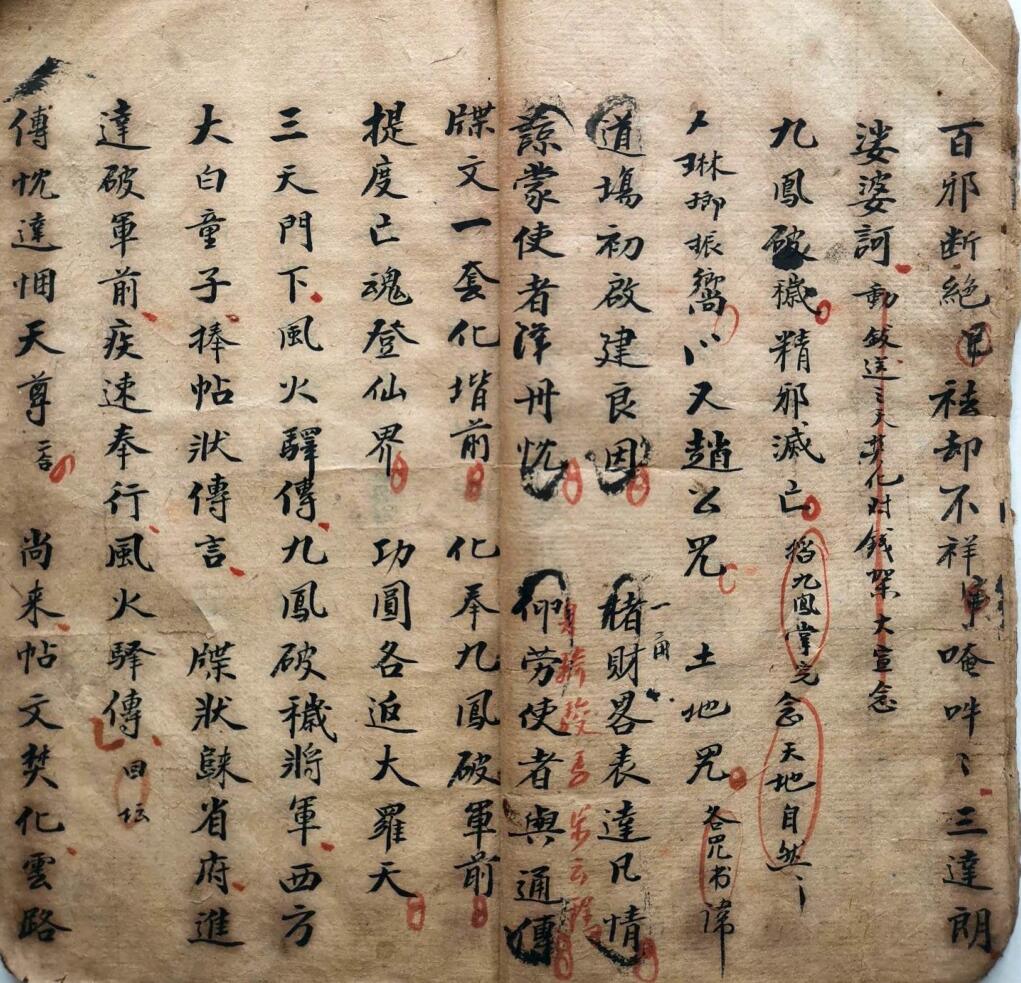 百邪断絕 袪却不祥 唵吽〻三達朗
娑婆訶 動鈸送〻天 化財錢架大宣念
九鳳破穢精邪滅亡 搯九鳳掌完 念天地自然〻
琳瑯振嚮 又趙公咒 土地咒 各咒书諱
道塲初啟建良因 楮財畧表達凡情
諒蒙使者 忱 仰劳使者與通傳
牒文一套化堦前 化奉九鳳破軍前
提度亡魂登仙界 功圓各返大羅天
三天門下風火驛傳九鳳破穢將軍西方
大白童子捧帖狀傳言 牒狀 省府進
達破軍前疾速奉行風火驿傳 回坛
傳忱達悃天尊 尚来帖文焚化雲路